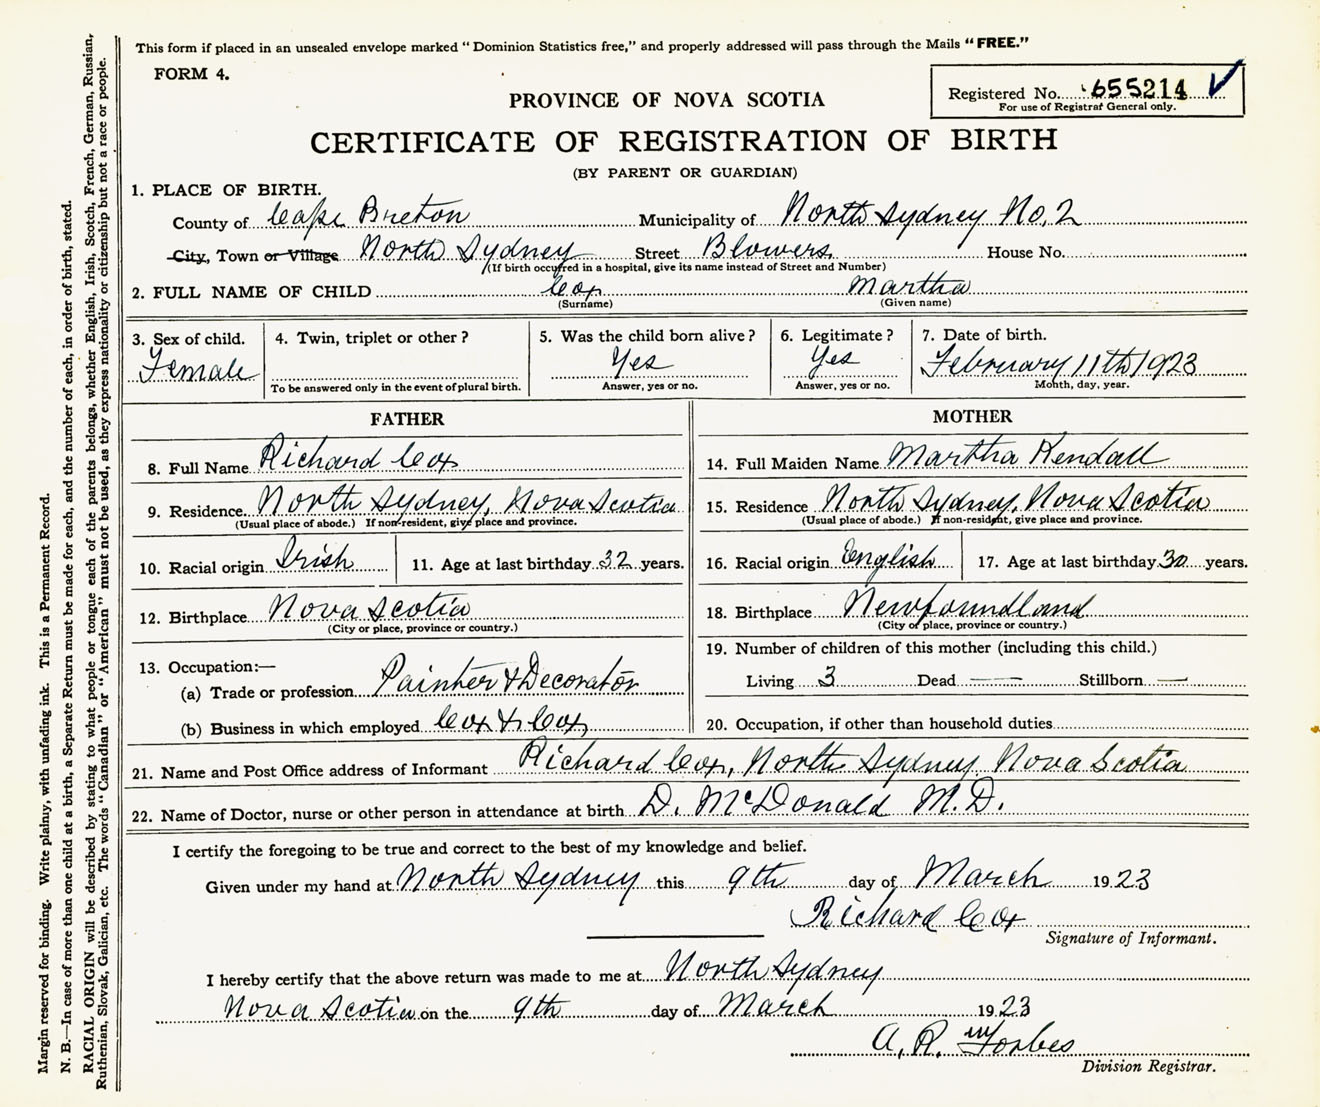 This form if placed in an unsealed envelope marked "Dominion Statistics free," and properly addressed will pass through the Mails "FREE."
FORM 4.
Registered No. 655214 ✓
For use of Registrar General only.
PROVINCE OF NOVA SCOTIA
CERTIFICATE OF REGISTRATION OF BIRTH
(BY PARENT OR GUARDIAN)
1. PLACE OF BIRTH.
County of Cape Breton Municipality of North Sydney No. 2
City, Town or Village North Sydney Street Blowers House No.
(If birth occurred in a hospital, give its name instead of Street and Number)
2. FULL NAME OF CHILD Cox Martha
(Surname) (Given name)
3. Sex of child. 4. Twin, triplet or other? 5. Was the child born alive? 6. Legitimate? 7. Date of birth.
Female Yes Yes February 11th 1923
To be answered only in the event of plural birth. Answer, yes or no. Answer, yes or no. Month, day, year.
FATHER MOTHER
8. Full Name Richard Cox 14. Full Maiden Name Martha Kendall
9. Residence North Sydney, Nova Scotia 15. Residence North Sydney, Nova Scotia
(Usual place of abode.) If non-resident, give place and province. (Usual place of abode.) If non-resident, give place and province.
10. Racial origin Irish 11. Age at last birthday 32 years. 16. Racial origin English 17. Age at last birthday 30 years.
12. Birthplace Nova Scotia 18. Birthplace Newfoundland
(City or place, province or country.) (City or place, province or country.)
13. Occupation:— 19. Number of children of this mother (including this child.)
(a) Trade or profession Painter & Decorator Living 3 Dead — Stillborn —
(b) Business in which employed Cox & Cox, 20. Occupation, if other than household duties
21. Name and Post Office address of Informant Richard Cox, North Sydney. Nova Scotia
22. Name of Doctor, nurse or other person in attendance at birth D. McDonald M.D.
I certify the foregoing to be true and correct to the best of my knowledge and belief.
Given under my hand at North Sydney this 9th day of March 1923
Richard Cox
Signature of Informant.
I hereby certify that the above return was made to me at North Sydney
Nova Scotia on the 9th day of March 1923
A. R. Forbes
Division Registrar.
Margin reserved for binding. Write plainly, with unfading ink. This is a Permanent Record.
N. B.—In case of more than one child at a birth, a Separate Return must be made for each, and the number of each, in order of birth, stated.
RACIAL ORIGIN will be described by stating to what people or tongue each of the parents belongs, whether English, Irish, Scotch, French, German, Russian,
Ruthenian, Slovak, Galician, etc. The words "Canadian" or "American" must not be used, as they express nationality or citizenship but not a race or people.